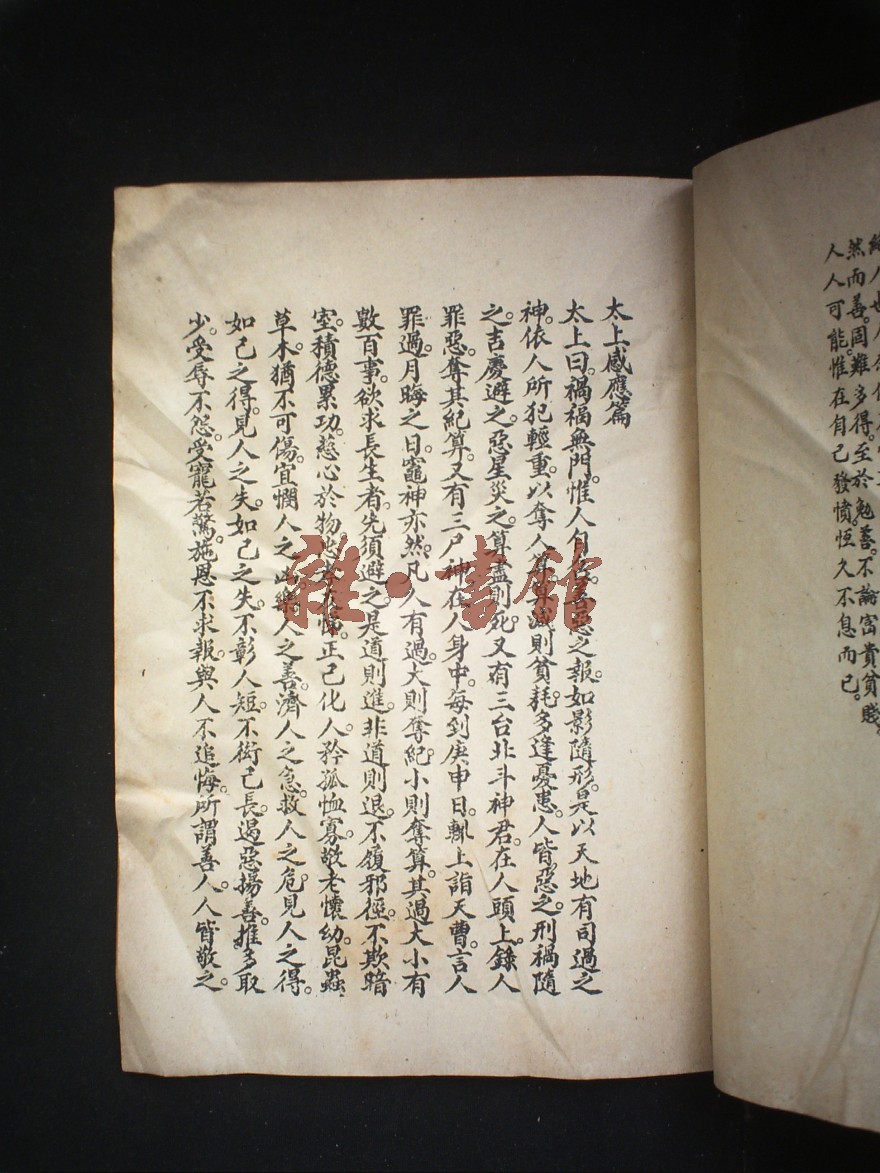 然而善。固難多得。至於勉善。不論富貴貧賤。
人人可能。惟在自己發憤。恆久不息而已。
太上感應篇
太上曰。禍福無門。惟人自召。善惡之報。如影隨形。是以天地有司過之
神。依人所犯輕重。以奪人算。算減則貧耗。多逢憂患。人皆惡之。刑禍隨
之。吉慶避之。惡星災之。算盡則死。又有三台北斗神君。在人頭上。錄人
罪惡。奪其紀算。又有三尸神。在人身中。每到庚申日。輒上詣天曹。言人
罪過。月晦之日。竈神亦然。凡人有過。大則奪紀。小則奪算。其過大小。有
數百事。欲求長生者。先須避之。是道則進。非道則退。不履邪徑。不欺暗
室。積德累功。慈心於物。忠孝友悌。正己化人。矜孤恤寡。敬老懷幼。昆蟲
草木。猶不可傷。宜憫人之凶。樂人之善。濟人之急。救人之危。見人之得。
如己之得。見人之失。如己之失。不彰人短。不衒己長。遏惡揚善。推多取
少。受辱不怨。受寵若驚。施恩不求報。與人不追悔。所謂善人。人皆敬之。
雜·書館